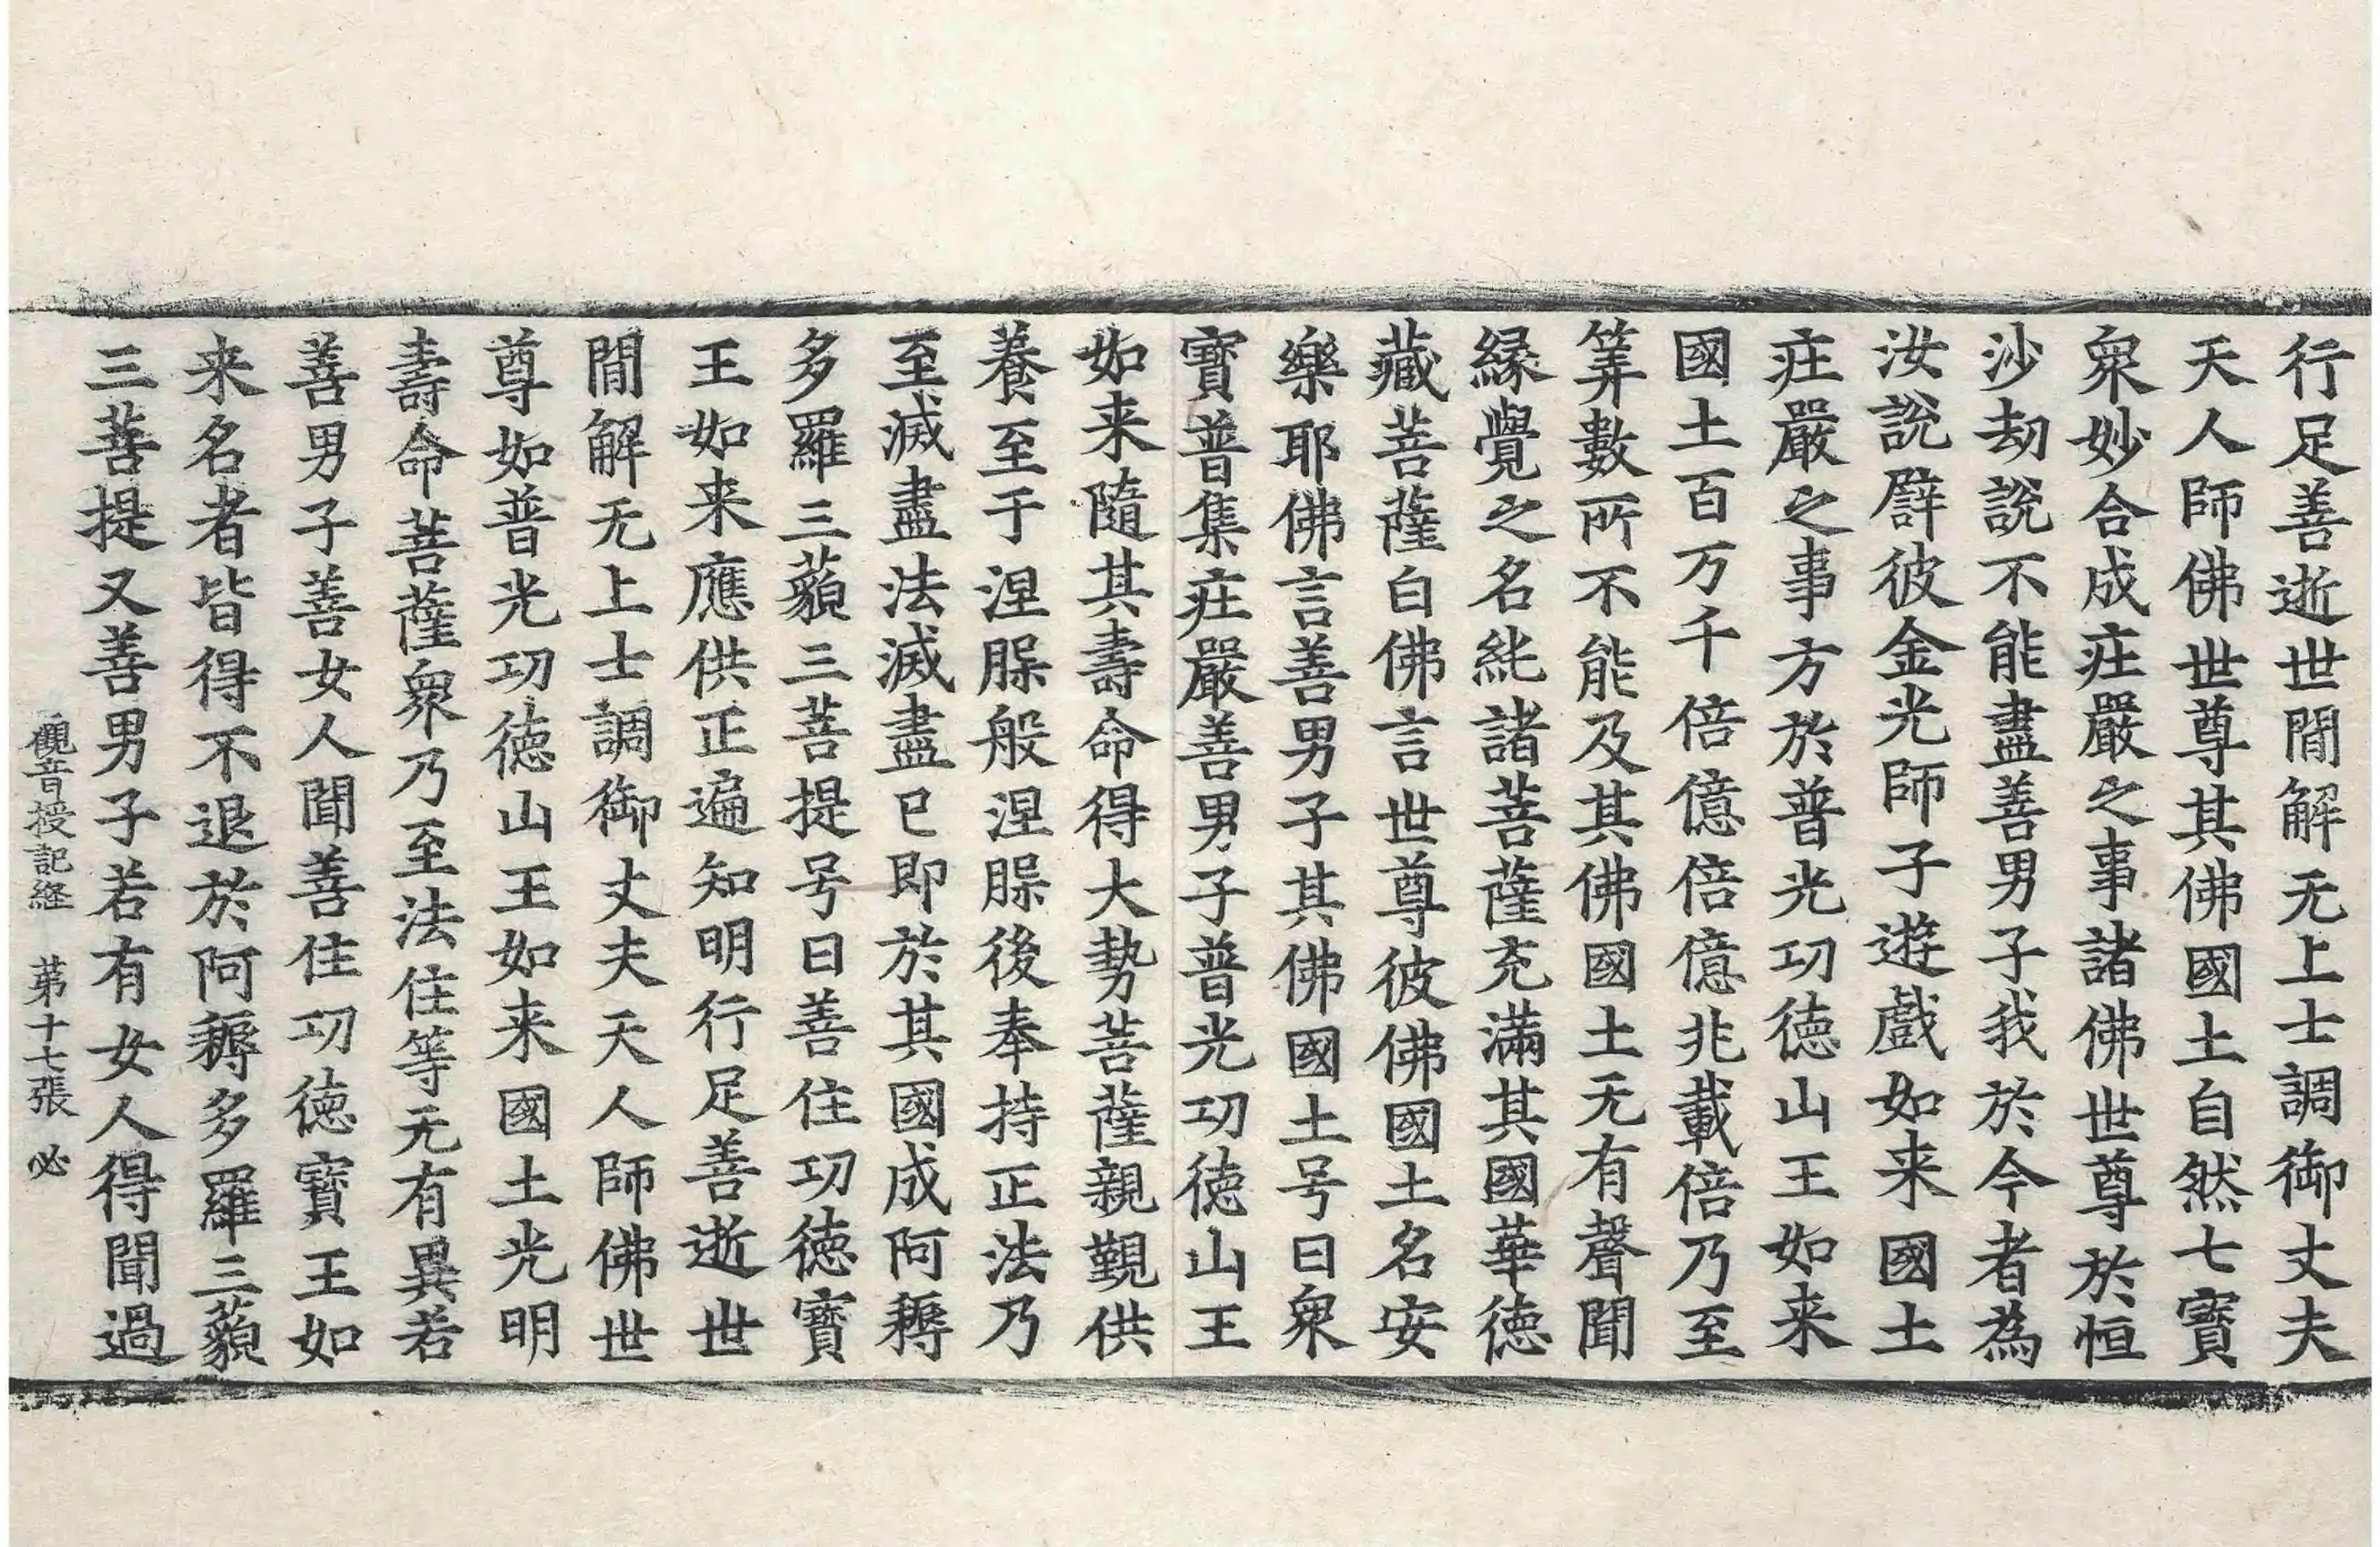 行足善逝世間解无上士調御丈夫
天人師佛世尊其佛國土自然七寶
衆妙合成庄嚴之事諸佛世尊於恒
沙劫說不能盡善男子我於今者為
汝說辟彼金光師子遊戲如来國土
庄嚴之事方於普光功德山王如来
國土百万千倍億倍億兆載倍乃至
筭數所不能及其佛國土无有聲聞
緣覺之名純諸菩薩充滿其國華德
藏菩薩白佛言世尊彼佛國土名安
樂耶佛言善男子其佛國土号曰衆
寶普集庄嚴善男子普光功德山王
如来隨其壽命得大勢菩薩親覲供
養至于涅槃般涅槃後奉持正法乃
至滅盡法滅盡已即於其國成阿耨
多羅三藐三菩提号曰善住功德寶
王如来應供正遍知明行足善逝世
間解无上士調御丈夫天人師佛世
尊如普光功德山王如来國土光明
壽命菩薩衆乃至法住等无有異若
善男子善女人聞善住功德寶王如
来名者皆得不退於阿耨多羅三藐
三菩提又善男子若有女人得聞過
觀音授記経 苐十七張 必